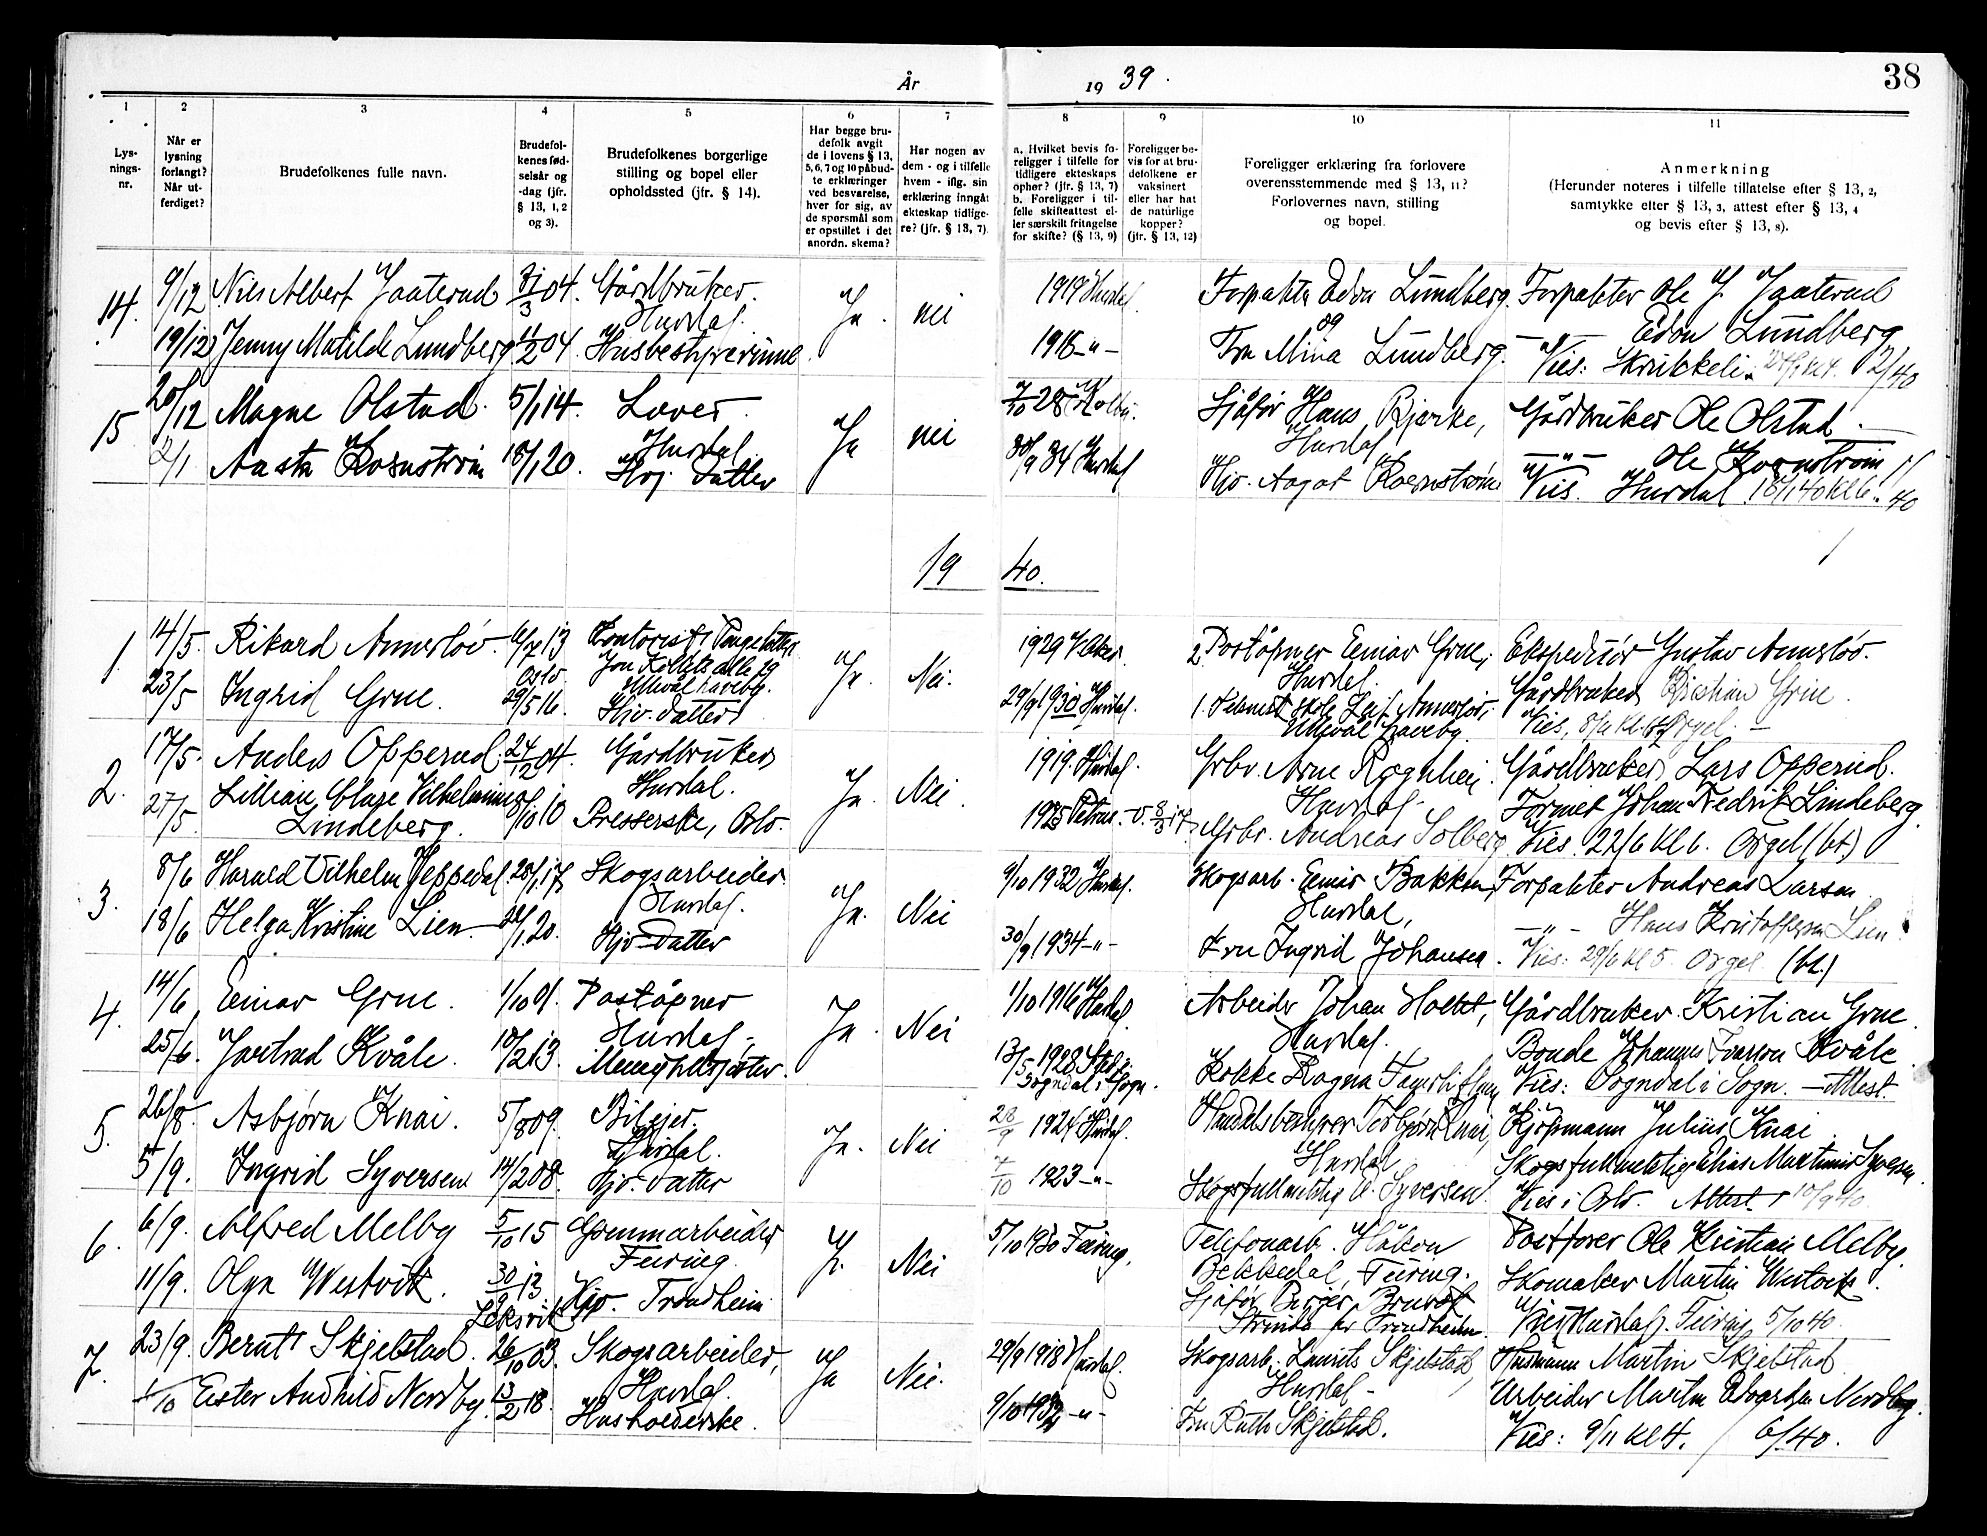 År 1939.
38
1 2 3 4 5 6 7 8 9 10 11
Lys-
nings-
nr.
Når er
lysning
forlangt?
Når ut-
ferdiget?
Brudefolkenes fulle navn.
Brudefol-
kenes fød-
selsår og
-dag (jfr.
§ 13, 1, 2
og 3).
Brudefolkenes borgerlige
stilling og bopel eller
opholdssted (jfr. § 14).
Har begge bru-
defolk avgit
de i lovens § 13,
5, 6, 7 og 10 påbud-
te erklæringer
ved besvarelse,
hver for sig, av
de spørsmål som
er opstillet i det
anordn. skema?
Har nogen av
dem - og i tilfelle
hvem - iflg. sin
erklæring inngåt
ekteskap tidlige-
re? (jfr. § 13, 7).
a. Hvilket bevis fo-
religger i tilfelle for
tidligere ekteskaps
ophør? (jfr. § 13, 7)
b. Foreligger i til-
felle skifteattest el-
ler særskilt fritagelse
for skifte? (§ 13, 9)
Foreligger be-
vis for at bru-
defolkene er
vaksinert
eller har hat
de naturlige
kopper?
(jfr. § 13, 12)
Foreligger erklæring fra forlovere
overensstemmende med § 13, 11?
Forlovernes navn, stilling
og bopel.
Anmerkning
(Herunder noteres i tilfelle tillatelse efter § 13, 2,
samtykke efter § 13, 3, attest efter § 13, 4
og bevis efter § 13, 8).
14. 9/12 Nils Albert Jaaterud 31/3 04. Gårdbruker. Hurdal. Ja. nei 1919 Hurdal. Forpakter Edor Lundberg og Forpakter Ole J. Jaaterud
19/12 Jenny Matilde Lundberg 11/2 04. Husbestyrerinne 1918 -"- Fru Mina Lundberg. -"- Edor Lundberg
Vies: Skrukkeli. 2/40
15 20/12 Magne Olstad. 5/1 14. Laver. Hurdal Ja nei 7/10 28 Kolbu. Sjåfør Hans Bjerke, Hurdal Gårdbruker Ole Olstad.
2/1 Aasta Kornstrøm 18/1 20. Hvj. datter 30/9 34 Hurdal Hjv. Aagot Kornstrøm -"- Ole Kornstrøm
Vies. Hurdal. 18/1 40 kl 6. 1/40
1940.
1. 14/5. Rikard Annerløv. 6/7 13 Oslo. Kontorist, Jon Kolletts alle 19 Ullevål haveby. Ja. Nei. 1929 V. Aker. 2. Poståpner Einar Grue, Hurdal. Ekspeditør Gustav Annerløv.
23/5 Ingrid Grue. 29/5 16. Hjv. datter 29/9 1930 Hurdal. 1. Leif Annerløv, Ullevål Haveby. Gårdbruker Kristian Grue.
Vies. Orgel
2. 17/5. Anders Opperud. 24/12 04. Gårdbruker Hurdal. Ja. Nei. 1919. Hurdal. Grbr. Arne Rognhei. Hurdal Gårdbruker Lars Opperud.
27/5. Lillian Clare Vilhelmine Lindeberg. 8/10 10 Presserske, Oslo. 1925 Petrus. v. 8/3 17. Grbr. Andreas Solberg Former Johan Fredrik Lindeberg.
Vies. 22/6 kl 6. Orgel (bt.)
3. 8/6 Harald Vilhelm Heppedal. 28/1 17. Skogsarbeider Hurdal. Ja. Nei 9/10 1932 Hurdal. Skogsarb. Einar Bakken, Hurdal, Forpakter Andreas Larsen
18/6 Helga Kristine Lien 1 20. Hjv. datter 30/9 1934 -"- Fru Ingrid Johansen. -"- Hans Kristoffersen Lien
Vies: 29/6 kl 5. Orgel (bt.)
4. 14/6 Einar Grue. 1/10 01. Poståpner Hurdal. Ja. Nei 1/10 1916 Hurdal. Arbeider Johan Holtet, Hurdal. Gårdbruker Kristian Grue.
25/6. Gjertrud Kvåle. 18/2 13. Menighetssøster. 13/5 1928 Sogndal i Sogn. Kokke Ragna Bonde Johannes Iverson Kvåle
Vies: Sogndal i Sogn. - Attest.
5. 26/8. Asbjørn Knai. 5/8 09. Bileier. Hurdal. Ja. Nei 28/9 1924 Hurdal. Handelsbestyrer Torbjørn Knai, Hurdal Kjøpmann Julius Knai.
5/9. Ingrid Syversen 14/2 08. Hjv. datter 7/10 1923 -"- Skogsfullmektig A. Syversen. Skogsfullmektig Elias Martinius Syversen
Vies i Oslo. Attest 10/9 40.
6. 6/9. Alfred Melby 5/10 15 Grønnarbeider Feiring. J. Nei 5/10 1930 Feiring. Telefonarb. Håkon Bekkedal, Feiring. Postfører Ole Kristian Melby.
11/9. Olga Westvik. 30/9 13 Leksvik Hjv. Trondheim Sjåfør Birger Strinda pr Trondheim. Skomaker Martin Westvik.
Vies (Hurdal) Feiring 5/10 40.
7. 23/9. Bernt Skjelstad. 26/10 03. Skogsarbeider, Hurdal. Ja Nei. 29/9 1918 Hurdal. Skogsarb. Laurits Skjelstad, Hurdal - Husmann Martin Skjelstad
1/10 Ester Andhild Nordby. 13/2 18. Husholderske. 9/10 1932 -"- Fru Ruth Skjelstad. Arbeider Martin Edvardsen Nordby.
Vies: 9/11 kl 4. / 6/40.